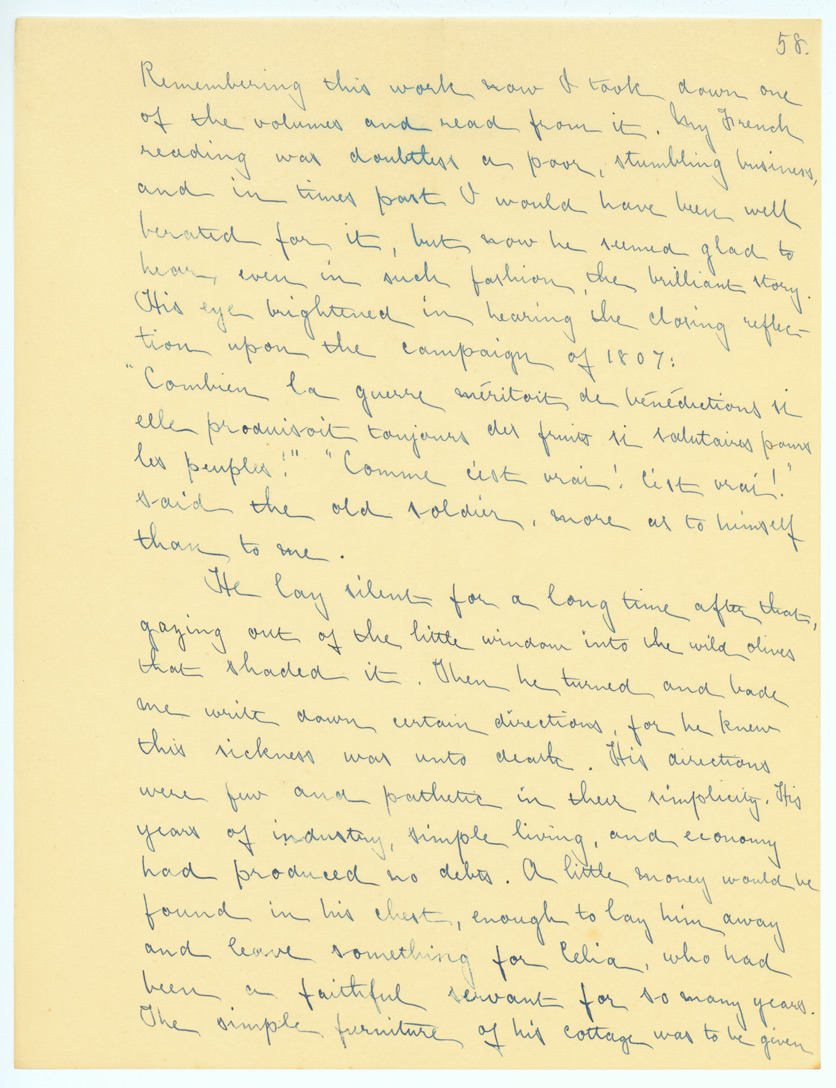 58.
Remembering this work now I took down one
of the volumes and read from it. My French
reading was doubtless a poor, stumbling business,
and in times past I would have been well
berated for it, but now he seemed glad to
hear, even in such fashion, the brilliant story.
His eye brightened in hearing the closing reflec-
tion upon the campaign of 1807:
"Combien la guerre méritoit de bénédictions si
elle produisoit toujours des fruits si salutaires pour
les peuples!" "Comme c'est vrai! C'est vrai!"
said the old soldier, more as to himself
than to me.
He lay silent for a long time after that,
gazing out of the little window into the wild olives
that shaded it. Then he turned and bade
me write down certain directions, for he knew
this sickness was unto death. His directions
were few and pathetic in their simplicity. His
years of industry, simple living, and economy
had produced no debts. A little money would be
found in his chest, enough to lay him away
and leave something for Celia, who had
been a faithful servant for so many years.
The simple furniture of his cottage was to be given